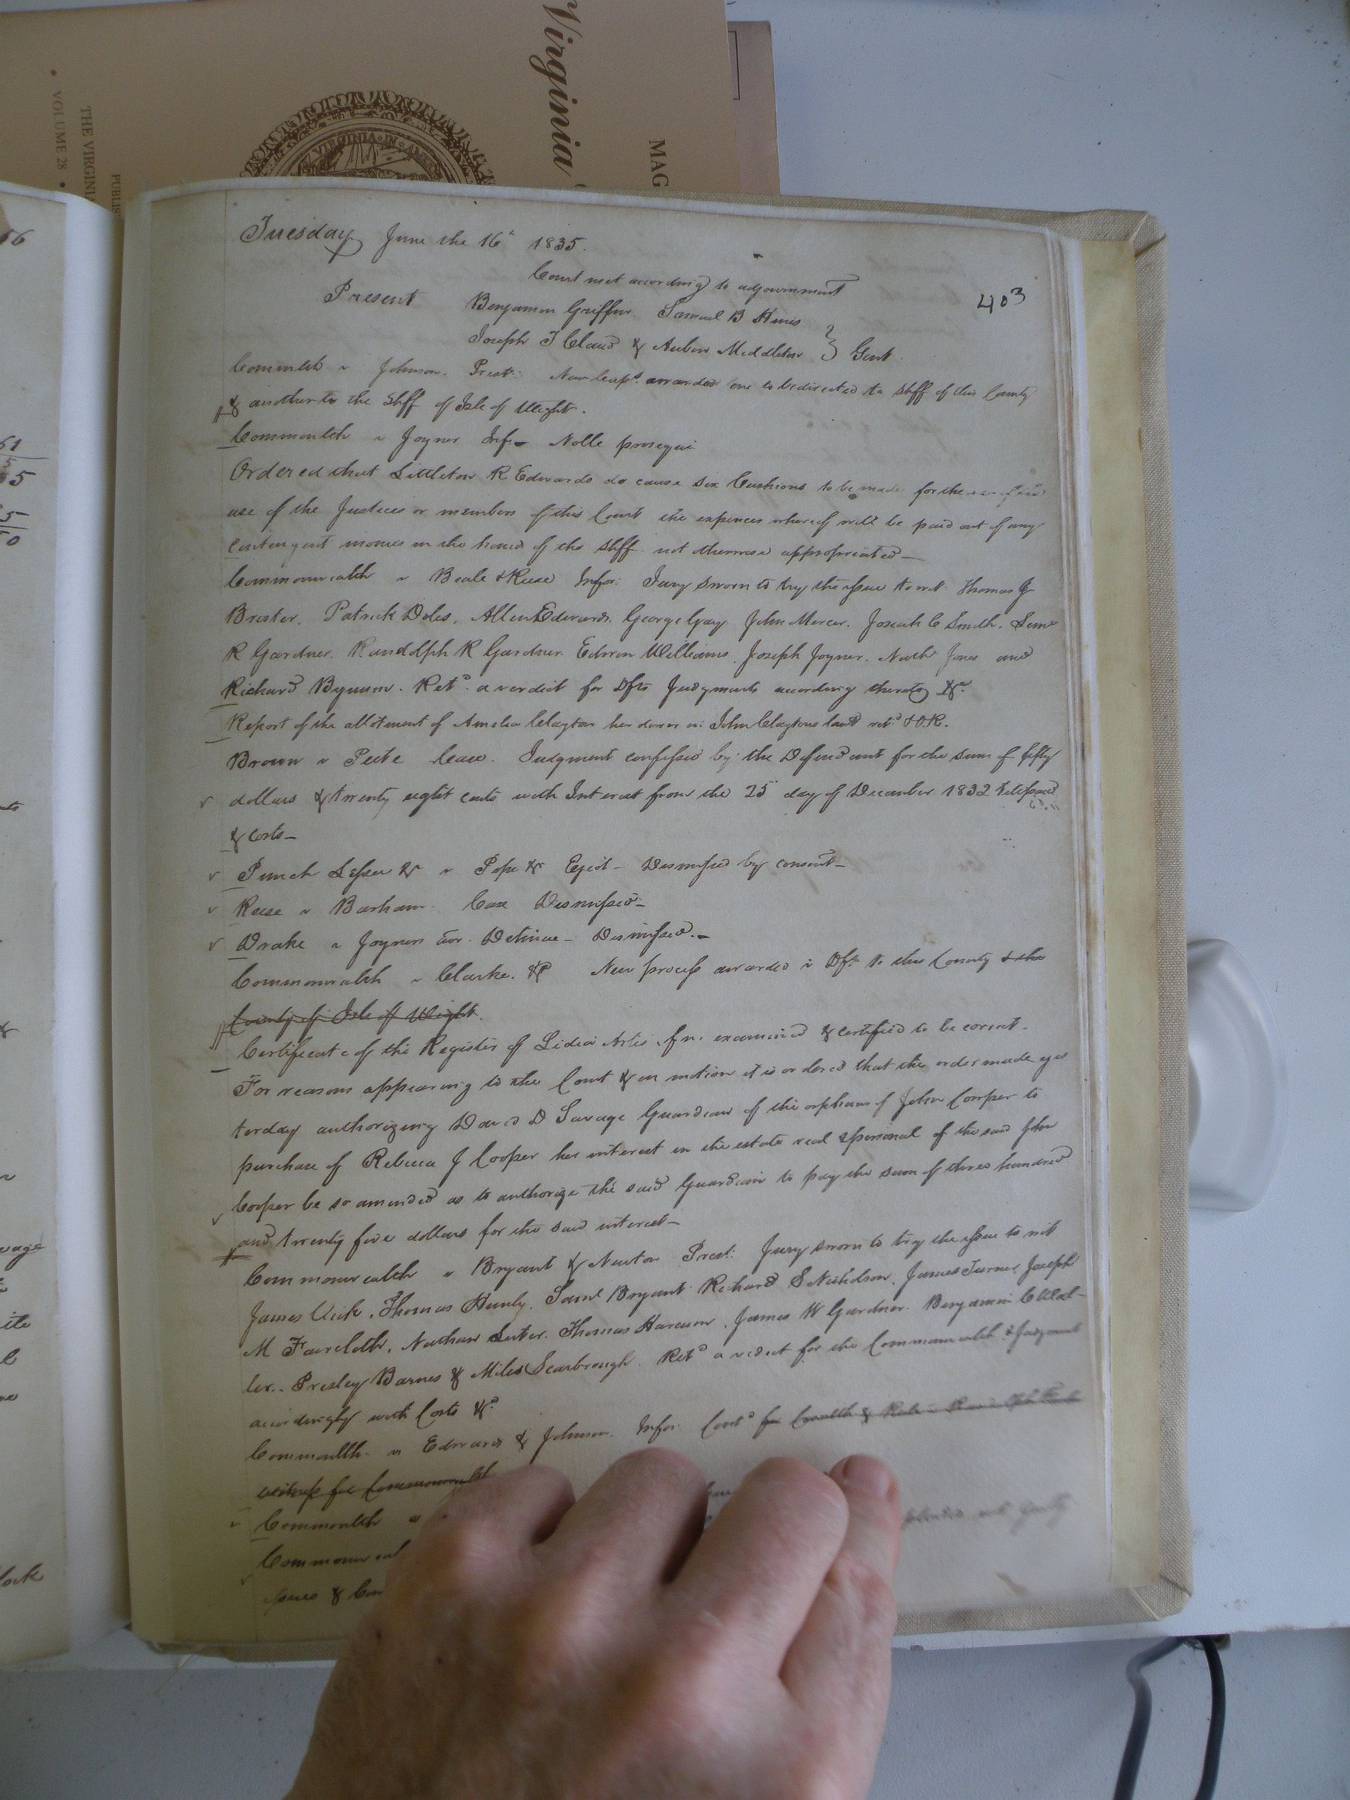 Virginia
MAG
THE VIRGINIA
VOLUME 28
PUBLIS
VIRGINIA IN
Tuesday June the 16th 1835.
403
Court met according to adjournment
Present Benjamin Griffin Samuel B Hines
Joseph T Claud & Auben Middleton } Gent.
Commlth v Johnson. Prest: New Caps. awarded one to be directed to Shff of this County
& another to the Shff of Isle of Weight.
Commonlth v Joyner Inf. Nolle prosequi
Ordered that Littleton R Edwards do cause six Cushions to be made for the
use of the Justices or members of this Court the expences whereof will be paid out of any
contengent monies in the hand of the Shff not otherwise appropriated
Commonwealth v Beale & Reese Infor: Jury sworn to try the issue to wit Thomas G
Broster, Patrick Doles, Allen Edwards, George Gay John Mercer, Josiah C Smith, Sam
R Gardner, Randolph R Gardner Edwin Williams, Joseph Joyner, Nath Jones and
Richard Bynum. Retd. a verdict for Dfts Judgments according thereto &c.
Report of the allotment of Amelia Clayton her dower in John Claytons land retd & OR.
Brown v Pete Case. Judgment confessed by the Defendant for the sum of fifty
dollars & twenty eight cents with Interest from the 25 day of December 1832 till paid
& costs
Punch Lessee &c v Pope &c Eject Dismissed by consent
Reese v Barham Case Dismissed
Drake v Joyners Exr. Detinue Dismissed.
Commonwealth v Clarke. &c New process awarded v Dft to this County & the
County of Isle of Weight.
Certificate of the Register of Lidia Artis f.n. examined & certified to be corect.
For reasons appearing to the Court & on motion it is ordered that the order made yes
terday authorizing David D Savage Guardian of the orphans of John Cooper to
purchase of Rebecca J Cooper her interest in the estate real & personal of the said John
Cooper be so amended as to authorize the said Guardian to pay the sum of three hundred
and twenty five dollars for the said interest
Commonwealth v Bryant & Newton Prest: Jury sworn to try the issue to wit
James Vick, Thomas Hunly, Saml Bryant Richard S Nicholson, James Turner, Joseph
M Faircloth, Nathan Luter, Thomas Harcum, James W Gardner. Benjamin C Wal
ler. Presley Barnes & Miles Scarbrough. Retd a verdict for the Commonwealth & Judgment
accordingly with Costs &c
Commonlth v Edwards & Johnson. Infor Contd for Cwealth &
witness for Commonwealth
Commonlth
Commonweal
not guilty
issues & Con